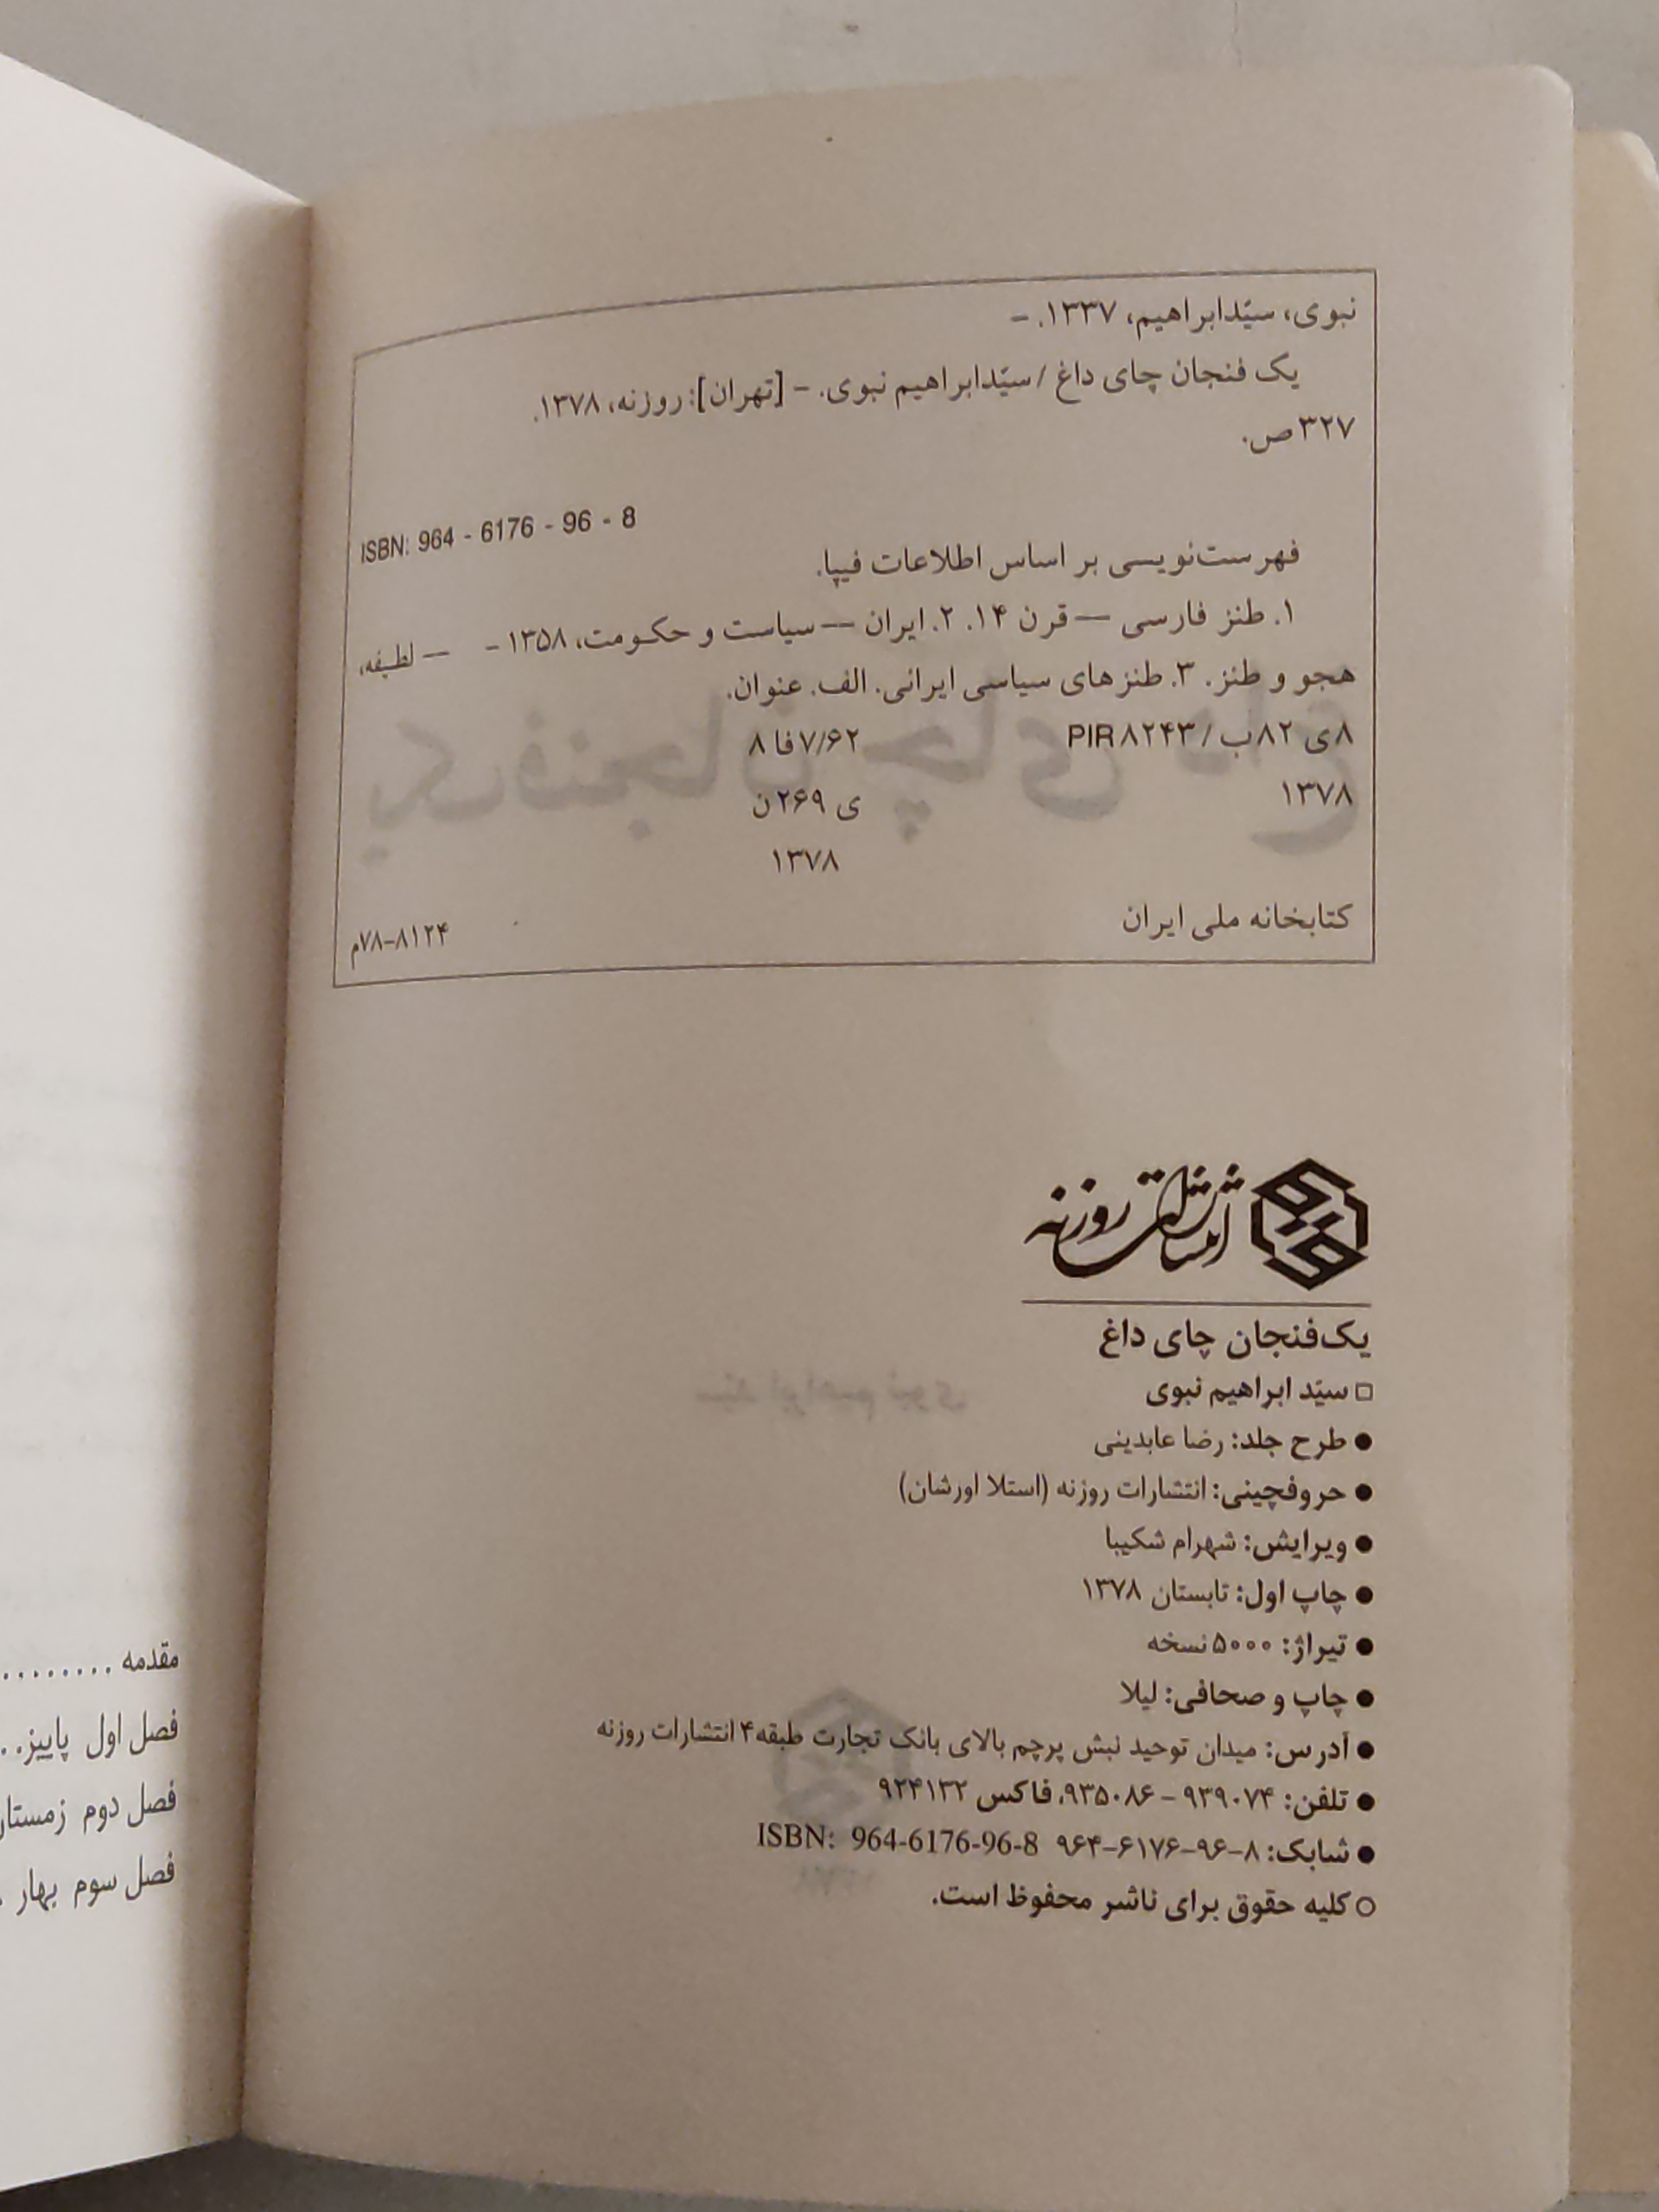 نبوی، سیّدابراهیم، ۱۳۳۷. –
یک فنجان چای داغ / سیّدابراهیم نبوی. – [تهران]: روزنه، ۱۳۷۸.
۳۲۷ ص.
ISBN: 964 - 6176 - 96 - 8
فهرست‌نویسی بر اساس اطلاعات فیپا.
۱. طنز فارسی — قرن ۱۴. ۲. ایران — سیاست و حکومت، ۱۳۵۸ – — لطیفه،
هجو و طنز. ۳. طنزهای سیاسی ایرانی. الف. عنوان.
۸ی ۸۲ب / PIR ۸۲۴۳ ۷/۶۲ فا ۸
۱۳۷۸ ی ۲۶۹ ن
۱۳۷۸
کتابخانه ملی ایران ۷۸–۸۱۲۴م
انتشارات روزنه
یک‌فنجان چای داغ
□ سیّد ابراهیم نبوی
● طرح جلد: رضا عابدینی
● حروفچینی: انتشارات روزنه (استلا اورشان)
● ویرایش: شهرام شکیبا
● چاپ اول: تابستان ۱۳۷۸
● تیراژ: ۵۰۰۰ نسخه
● چاپ و صحافی: لیلا
● آدرس: میدان توحید نبش پرچم بالای بانک تجارت طبقه ۴ انتشارات روزنه
● تلفن: ۹۳۹۰۷۴ – ۹۳۵۰۸۶، فاکس ۹۲۴۱۳۲
● شابک: ۸–۹۶–۶۱۷۶–۹۶۴ ISBN: 964-6176-96-8
○ کلیه حقوق برای ناشر محفوظ است.
مقدمه .........
فصل اول پاییز..
فصل دوم زمستان
فصل سوم بهار .